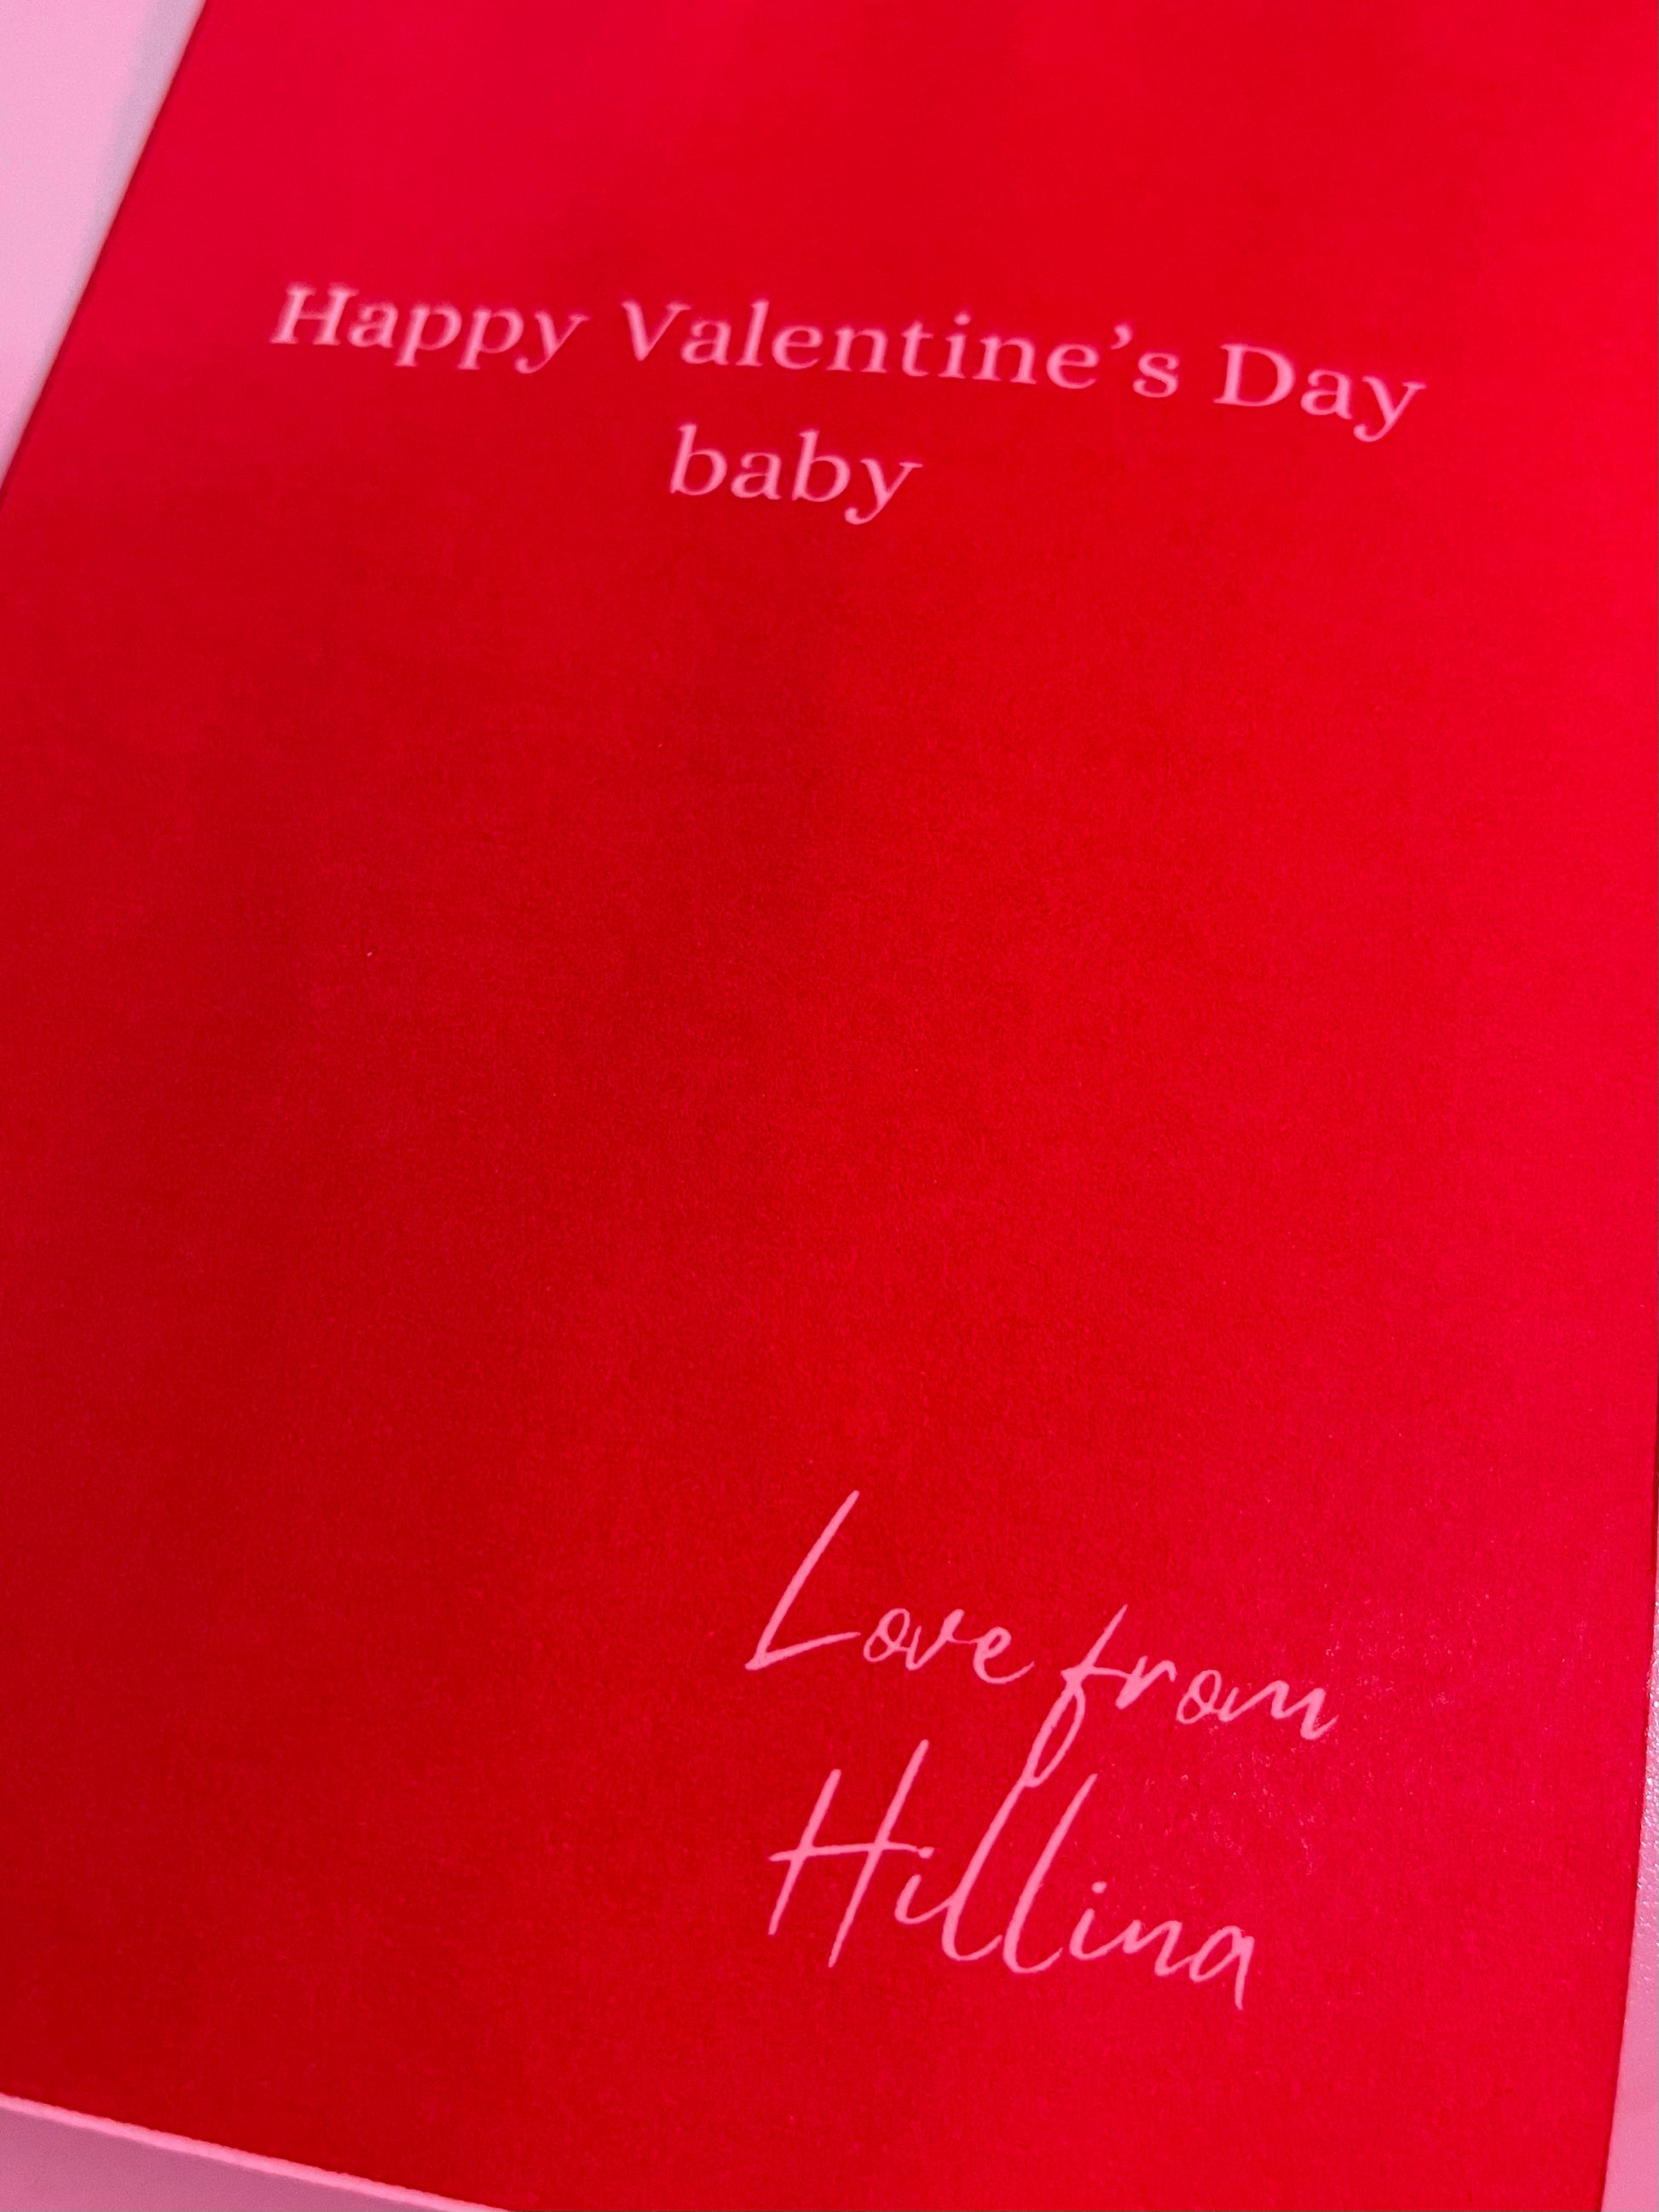 Happy Valentine’s Day
baby
Love from
Hillina